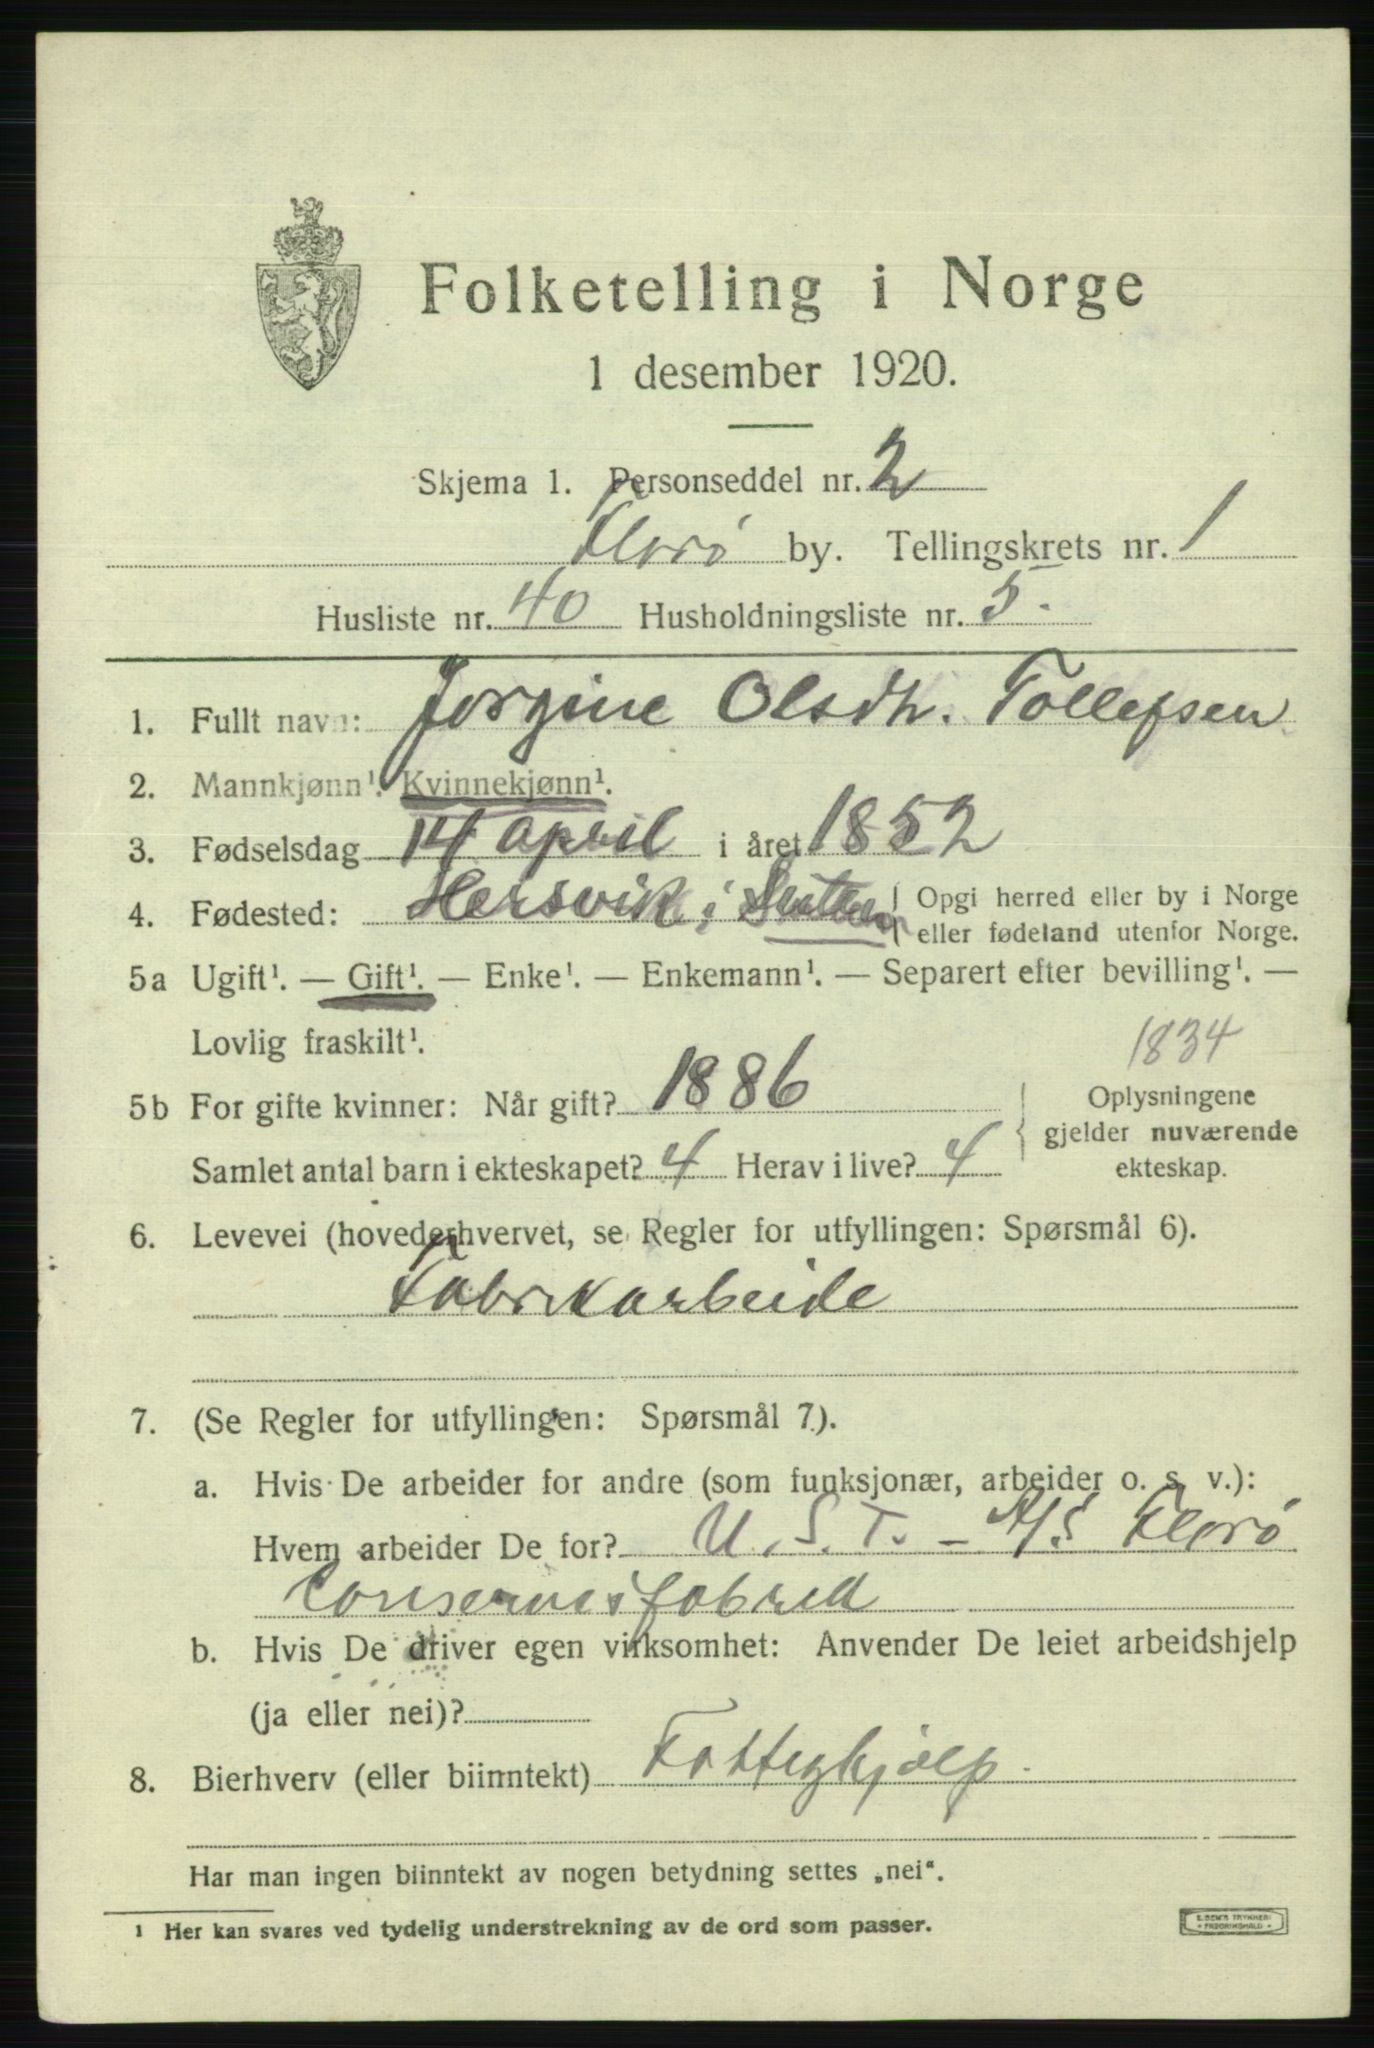 Folketelling i Norge
1 desember 1920.
Skjema 1. Personseddel nr. 2
Florø by. Tellingskrets nr. 1
Husliste nr. 40 Husholdningsliste nr. 5.
1. Fullt navn: Jorgine Olsdtr. Tollefsen
2. Mannkjønn¹. Kvinnekjønn¹.
3. Fødselsdag 14 april i året 1852
4. Fødested: Hersvik i { Opgi herred eller by i Norge
eller fødeland utenfor Norge.
5a Ugift¹. — Gift¹. — Enke¹. — Enkemann¹. — Separert efter bevilling¹. —
Lovlig fraskilt¹.
1834
5b For gifte kvinner: Når gift? 1886 Oplysningene
gjelder nuværende
Samlet antal barn i ekteskapet? 4 Herav i live? 4 ekteskap.
6. Levevei (hovederhvervet, se Regler for utfyllingen: Spørsmål 6).
Fabrikarbeide
7. (Se Regler for utfyllingen: Spørsmål 7).
a. Hvis De arbeider for andre (som funksjonær, arbeider o. s. v.):
Hvem arbeider De for? U.S.T. – A/S Florø
Conservesfabrik
b. Hvis De driver egen virksomhet: Anvender De leiet arbeidshjelp
(ja eller nei)?
8. Bierhverv (eller biinntekt) Fattighjælp.
Har man ingen biinntekt av nogen betydning settes „nei“.
¹ Her kan svares ved tydelig understrekning av de ord som passer.